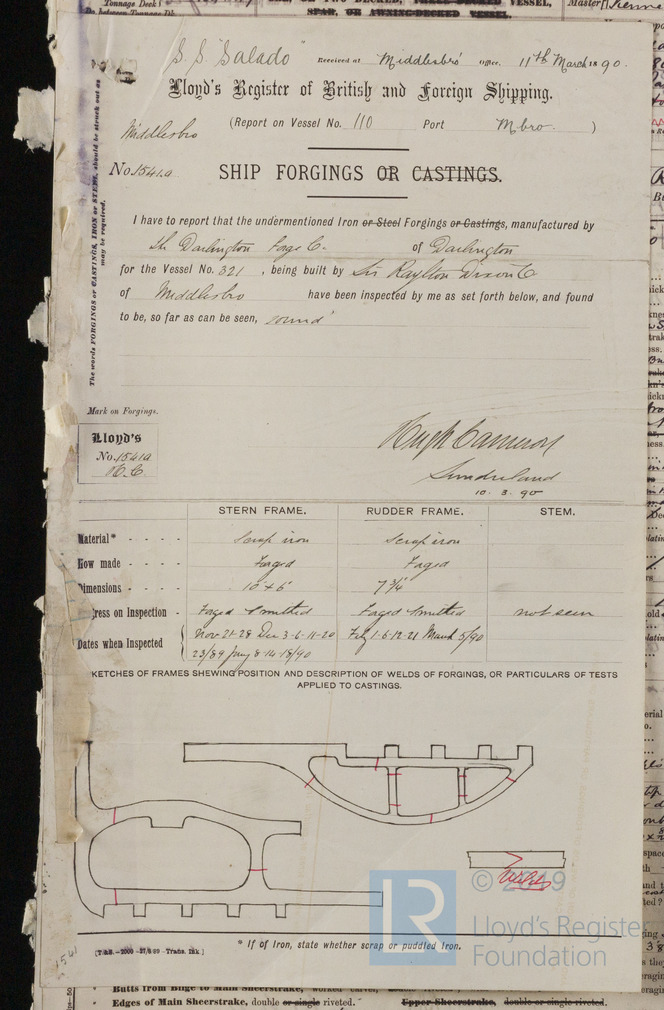 Tonnage Deck
SPAR, OR AWNING-DECKED VESSEL.
Master
S.S. "Salado" Received at Middlesbro' Office, 11th March 1890.
Lloyd's Register of British and Foreign Shipping.
Middlesbro (Report on Vessel No. 110 Port Mbro. )
No 1541a SHIP FORGINGS OR CASTINGS.
The words FORGINGS or CASTINGS, IRON or STEEL, should be struck out as
may be required.
I have to report that the undermentioned Iron or Steel Forgings or Castings, manufactured by
The Darlington Forge Co. of Darlington
for the Vessel No. 321 , being built by Sir Raylton Dixon & Co
of Middlesbro have been inspected by me as set forth below, and found
to be, so far as can be seen, sound
Mark on Forgings.
Lloyd's
No. 1541a
H.C.
Hugh Cameron
Sunderland
10.3.90
STERN FRAME. RUDDER FRAME. STEM.
Material* - - - - Scrap iron Scrap iron
How made - - - - Forged Forged
Dimensions - - - - 10 x 6 7 3/4
ress on Inspection - Forged & smitted Forged & smitted not seen
Dates when Inspected Nov 21-28 Dec 3-6-11-20 Feby 1-6-12-21 March 5/90
23/89 Jany 8-14-18/90
KETCHES OF FRAMES SHEWING POSITION AND DESCRIPTION OF WELDS OF FORGINGS, OR PARTICULARS OF TESTS
APPLIED TO CASTINGS.
Welds
© 2019
LR
Lloyd's Register
Foundation
* If of Iron, state whether scrap or puddled iron.
Butts from Bilge to Main Sheerstrake, worked carvel,
Edges of Main Sheerstrake, double or single riveted. Upper Sheerstrake, double or single riveted.